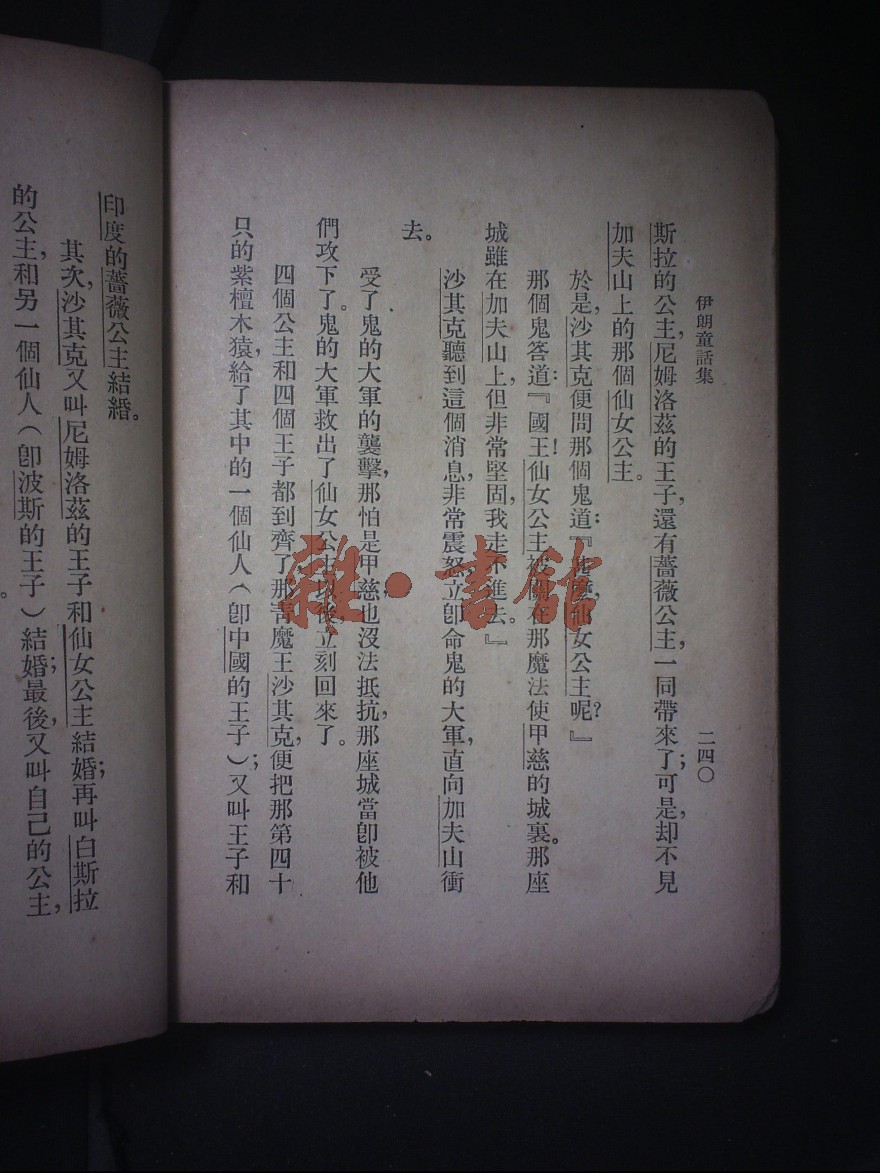 伊朗童話集
二四〇
斯拉的公主,尼姆洛茲的王子,還有薔薇公主,一同帶來了;可是,却不見
加夫山上的那個仙女公主。
於是,沙其克便問那個鬼道:『鬼麼,仙女公主呢?』
那個鬼答道:『國王!仙女公主被關在那魔法使甲慈的城裏。那座
城雖在加夫山上,但非常堅固,我走不進去。』
沙其克聽到這個消息,非常震怒,立卽命鬼的大軍,直向加夫山衝
去。
受了鬼的大軍的襲擊,那怕是甲慈也沒法抵抗,那座城當卽被他
們攻下了。鬼的大軍救出了仙女公主以後,立刻回來了。
四個公主和四個王子都到齊了,那靑魔王沙其克,便把那第四十
只的紫檀木猿,給了其中的一個仙人(卽中國的王子);又叫王子和
印度的薔薇公主結婚。
其次,沙其克又叫尼姆洛茲的王子和仙女公主結婚;再叫白斯拉
的公主,和另一個仙人(卽波斯的王子)結婚;最後,又叫自己的公主,
雜·書館